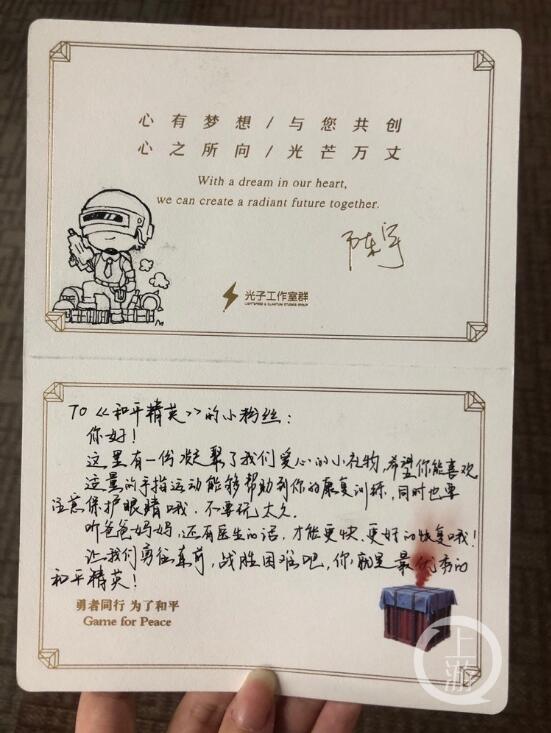 心有梦想/与您共创
心之所向/光芒万丈
With a dream in our heart,
we can create a radiant future together.
光子工作室群
LIGHTSPEED & QUANTUM STUDIOS GROUP
TO《和平精英》的小粉丝：
你好！
这里有一份凝聚了我们爱心的小礼物，希望你能喜欢
适量的手指运动能够帮助到你的康复训练，同时也要
注意保护眼睛哦，不要玩太久。
听爸爸妈妈，还有医生的话，才能更快、更好的恢复哦！
让我们勇往直前，战胜困难吧，你，就是最优秀的
和平精英！
勇者同行 为了和平
Game for Peace
上游